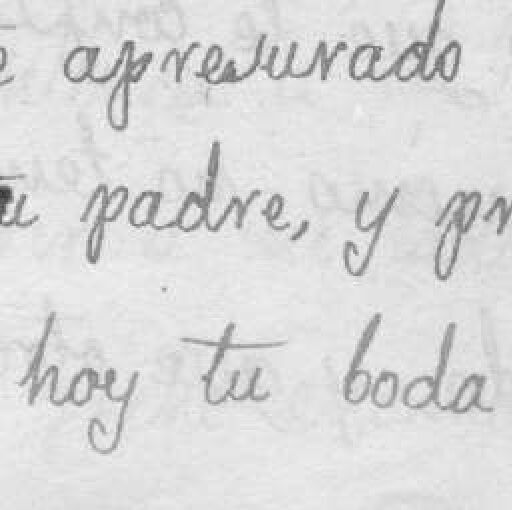 apresurado
tu padre, y pr
hoy tu boda